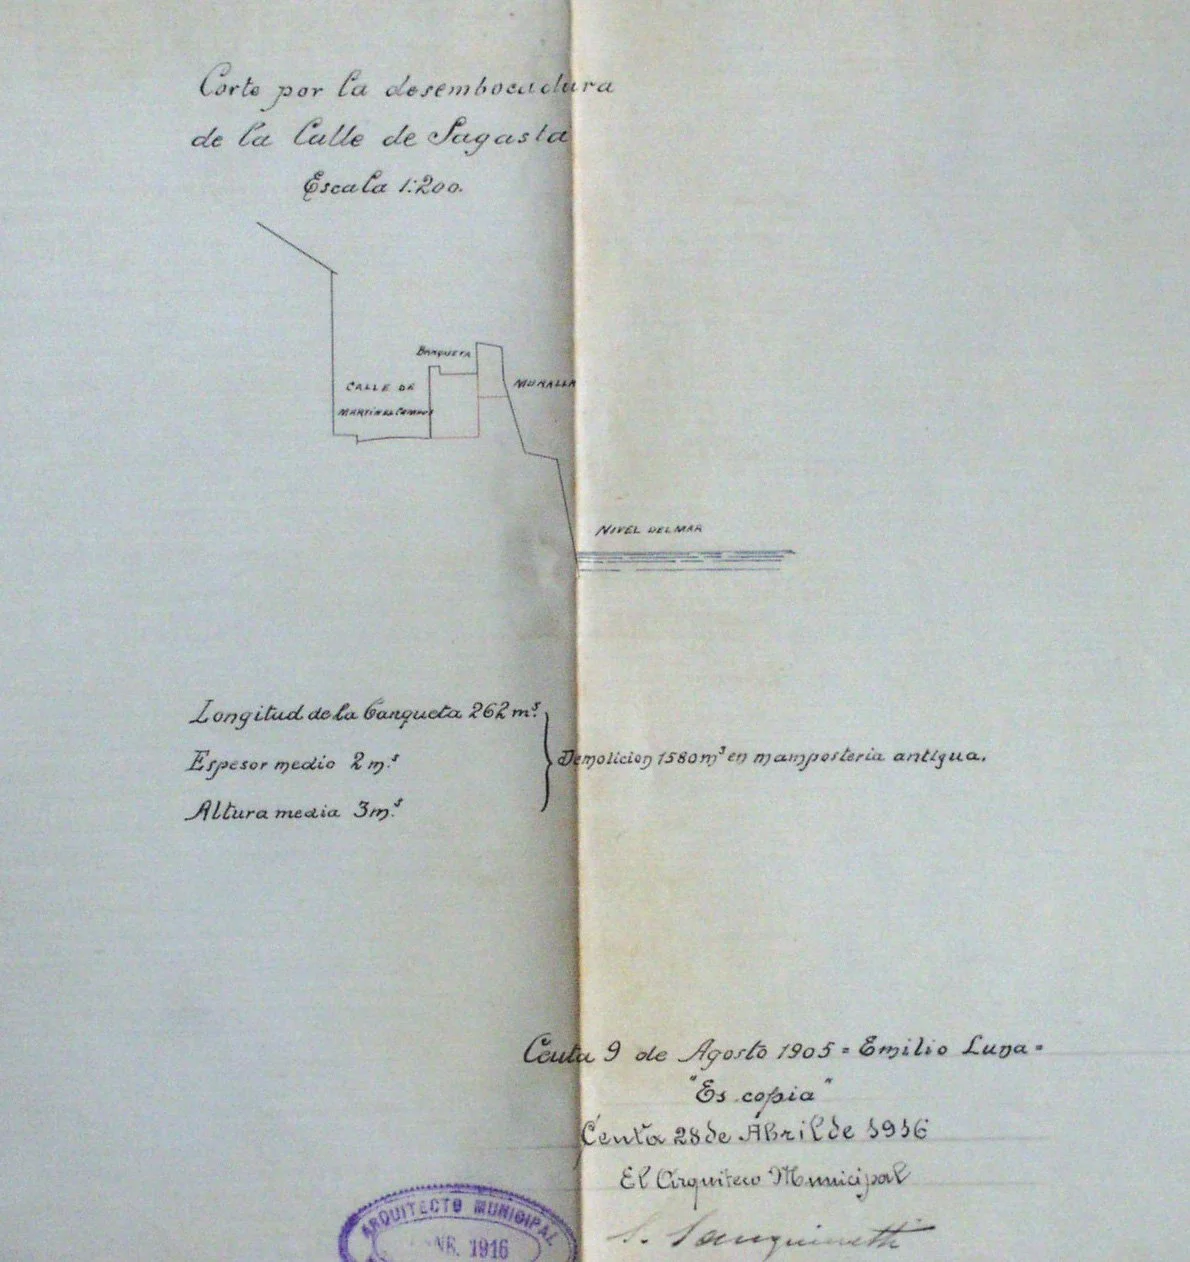 Corte por la desembocadura
de la Calle de Sagasta
Escala 1:200.
BANQUETA
CALLE DE
MURALLA
MARTINEZ CAMPOS
NIVEL DEL MAR
Longitud de la banqueta 262 mˢ.
Espesor medio 2 m.ˢ
Demolicion 1580 m³ en mamposteria antigua.
Altura media 3 m.ˢ
Ceuta 9 de Agosto 1905 = Emilio Luna =
"Es copia"
Ceuta 28 de Abril de 1916
El Arquitecto Municipal
S. Sanguinetti
ARQUITECTO MUNICIPAL
1916